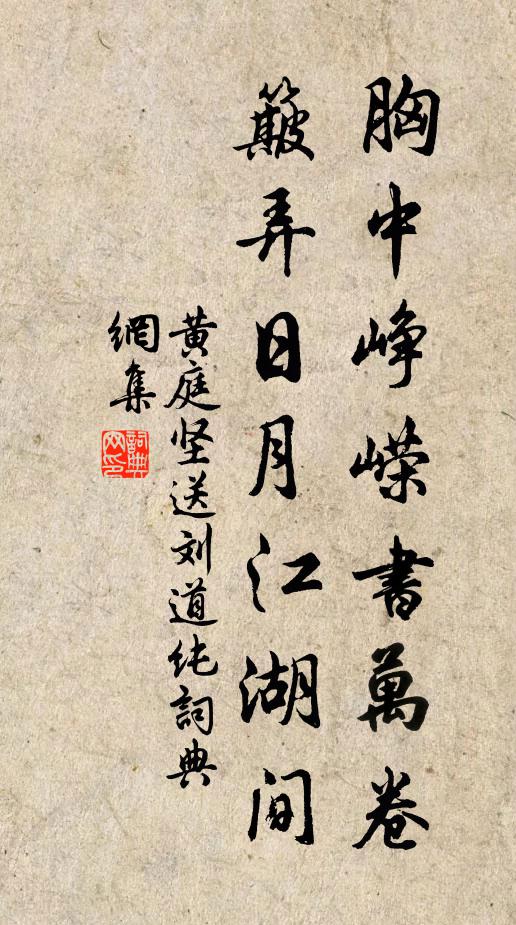 胸中峥嵘書萬卷
簸弄日月江湖间
黄庭坚送刘道纯詞典
網集
詞典網印